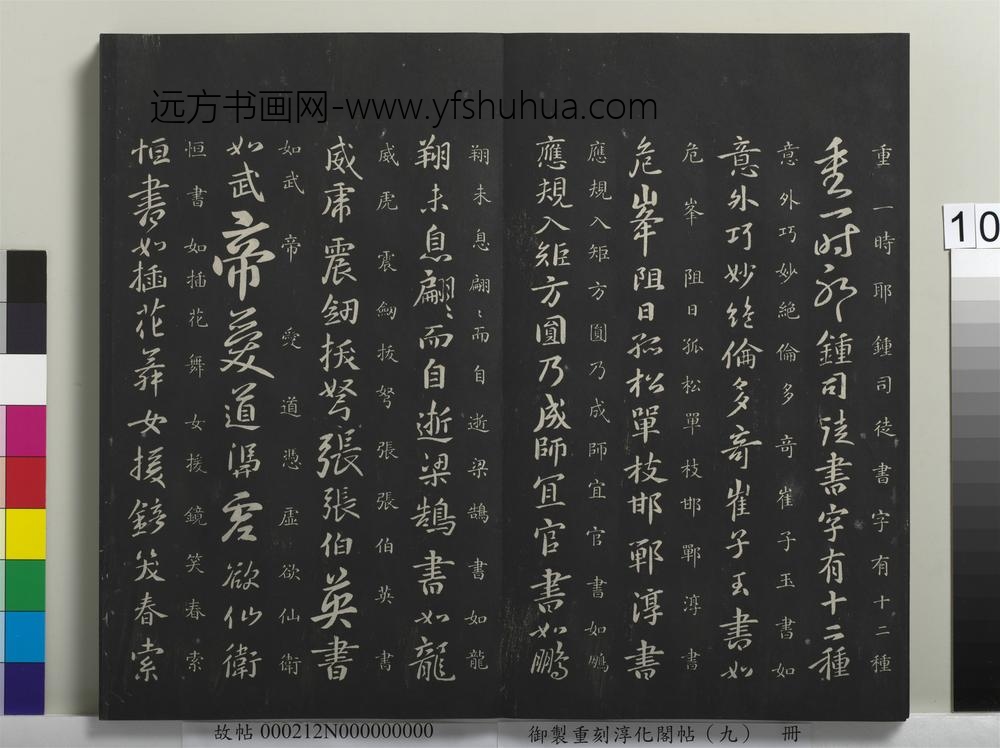 远方书画网-www.yfshuhua.com
重一時耶鍾司徒書字有十二種
重一时耶鍾司徒書字有十二種
意外巧妙絶倫多奇崔子玉書如
意外巧妙絶倫多奇崔子玉書如
危峯阻日孤松單枝邯鄲淳書
危峯阻日孤松單枝邯鄲淳書
應規入矩方圓乃成師宜官書如鵬
應規入矩方圓乃成師宜官書如鵬
翔未息翩〻而自逝梁鵠書如龍
翔未息翩〻而自逝梁鵠書如龍
威虎震劒拔弩張張伯英書
威虎震劒拔弩張張伯英書
如武帝愛道憑虛欲仙衛
如武帝愛道憑虛欲仙衛
恒書如插花舞女援鏡笑春索
恒書如插花舞女援鏡笑春索
10
故帖 000212N000000000
御製重刻淳化閣帖（九） 冊